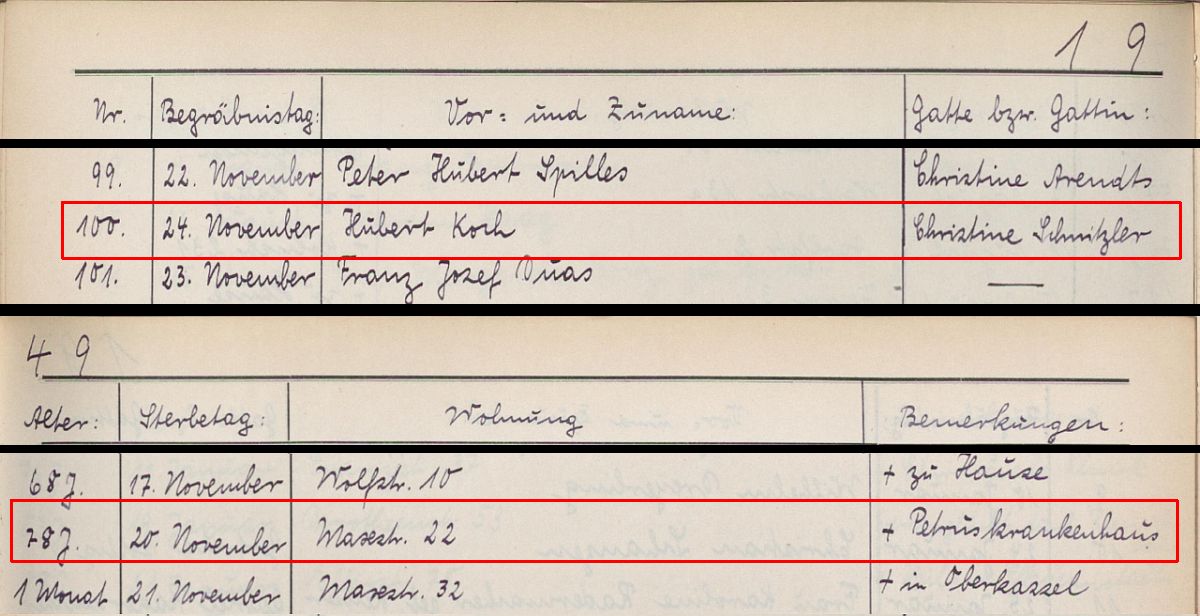 1 9
Nr. Begräbnistag: Vor- und Zuname: Gatte bzw. Gattin:
99. 22. November Peter Hubert Spilles Christine Arendts
100. 24. November Hubert Koch Christine Schnitzler
101. 23. November Franz Josef Duas —
4 9
Alter: Sterbetag: Wohnung Bemerkungen:
68 J. 17. November Wolfstr. 10 + zu Hause
78 J. 20. November Maxstr. 22 + Petruskrankenhaus
1 Monat 21. November Maxstr. 32 + in Oberkassel